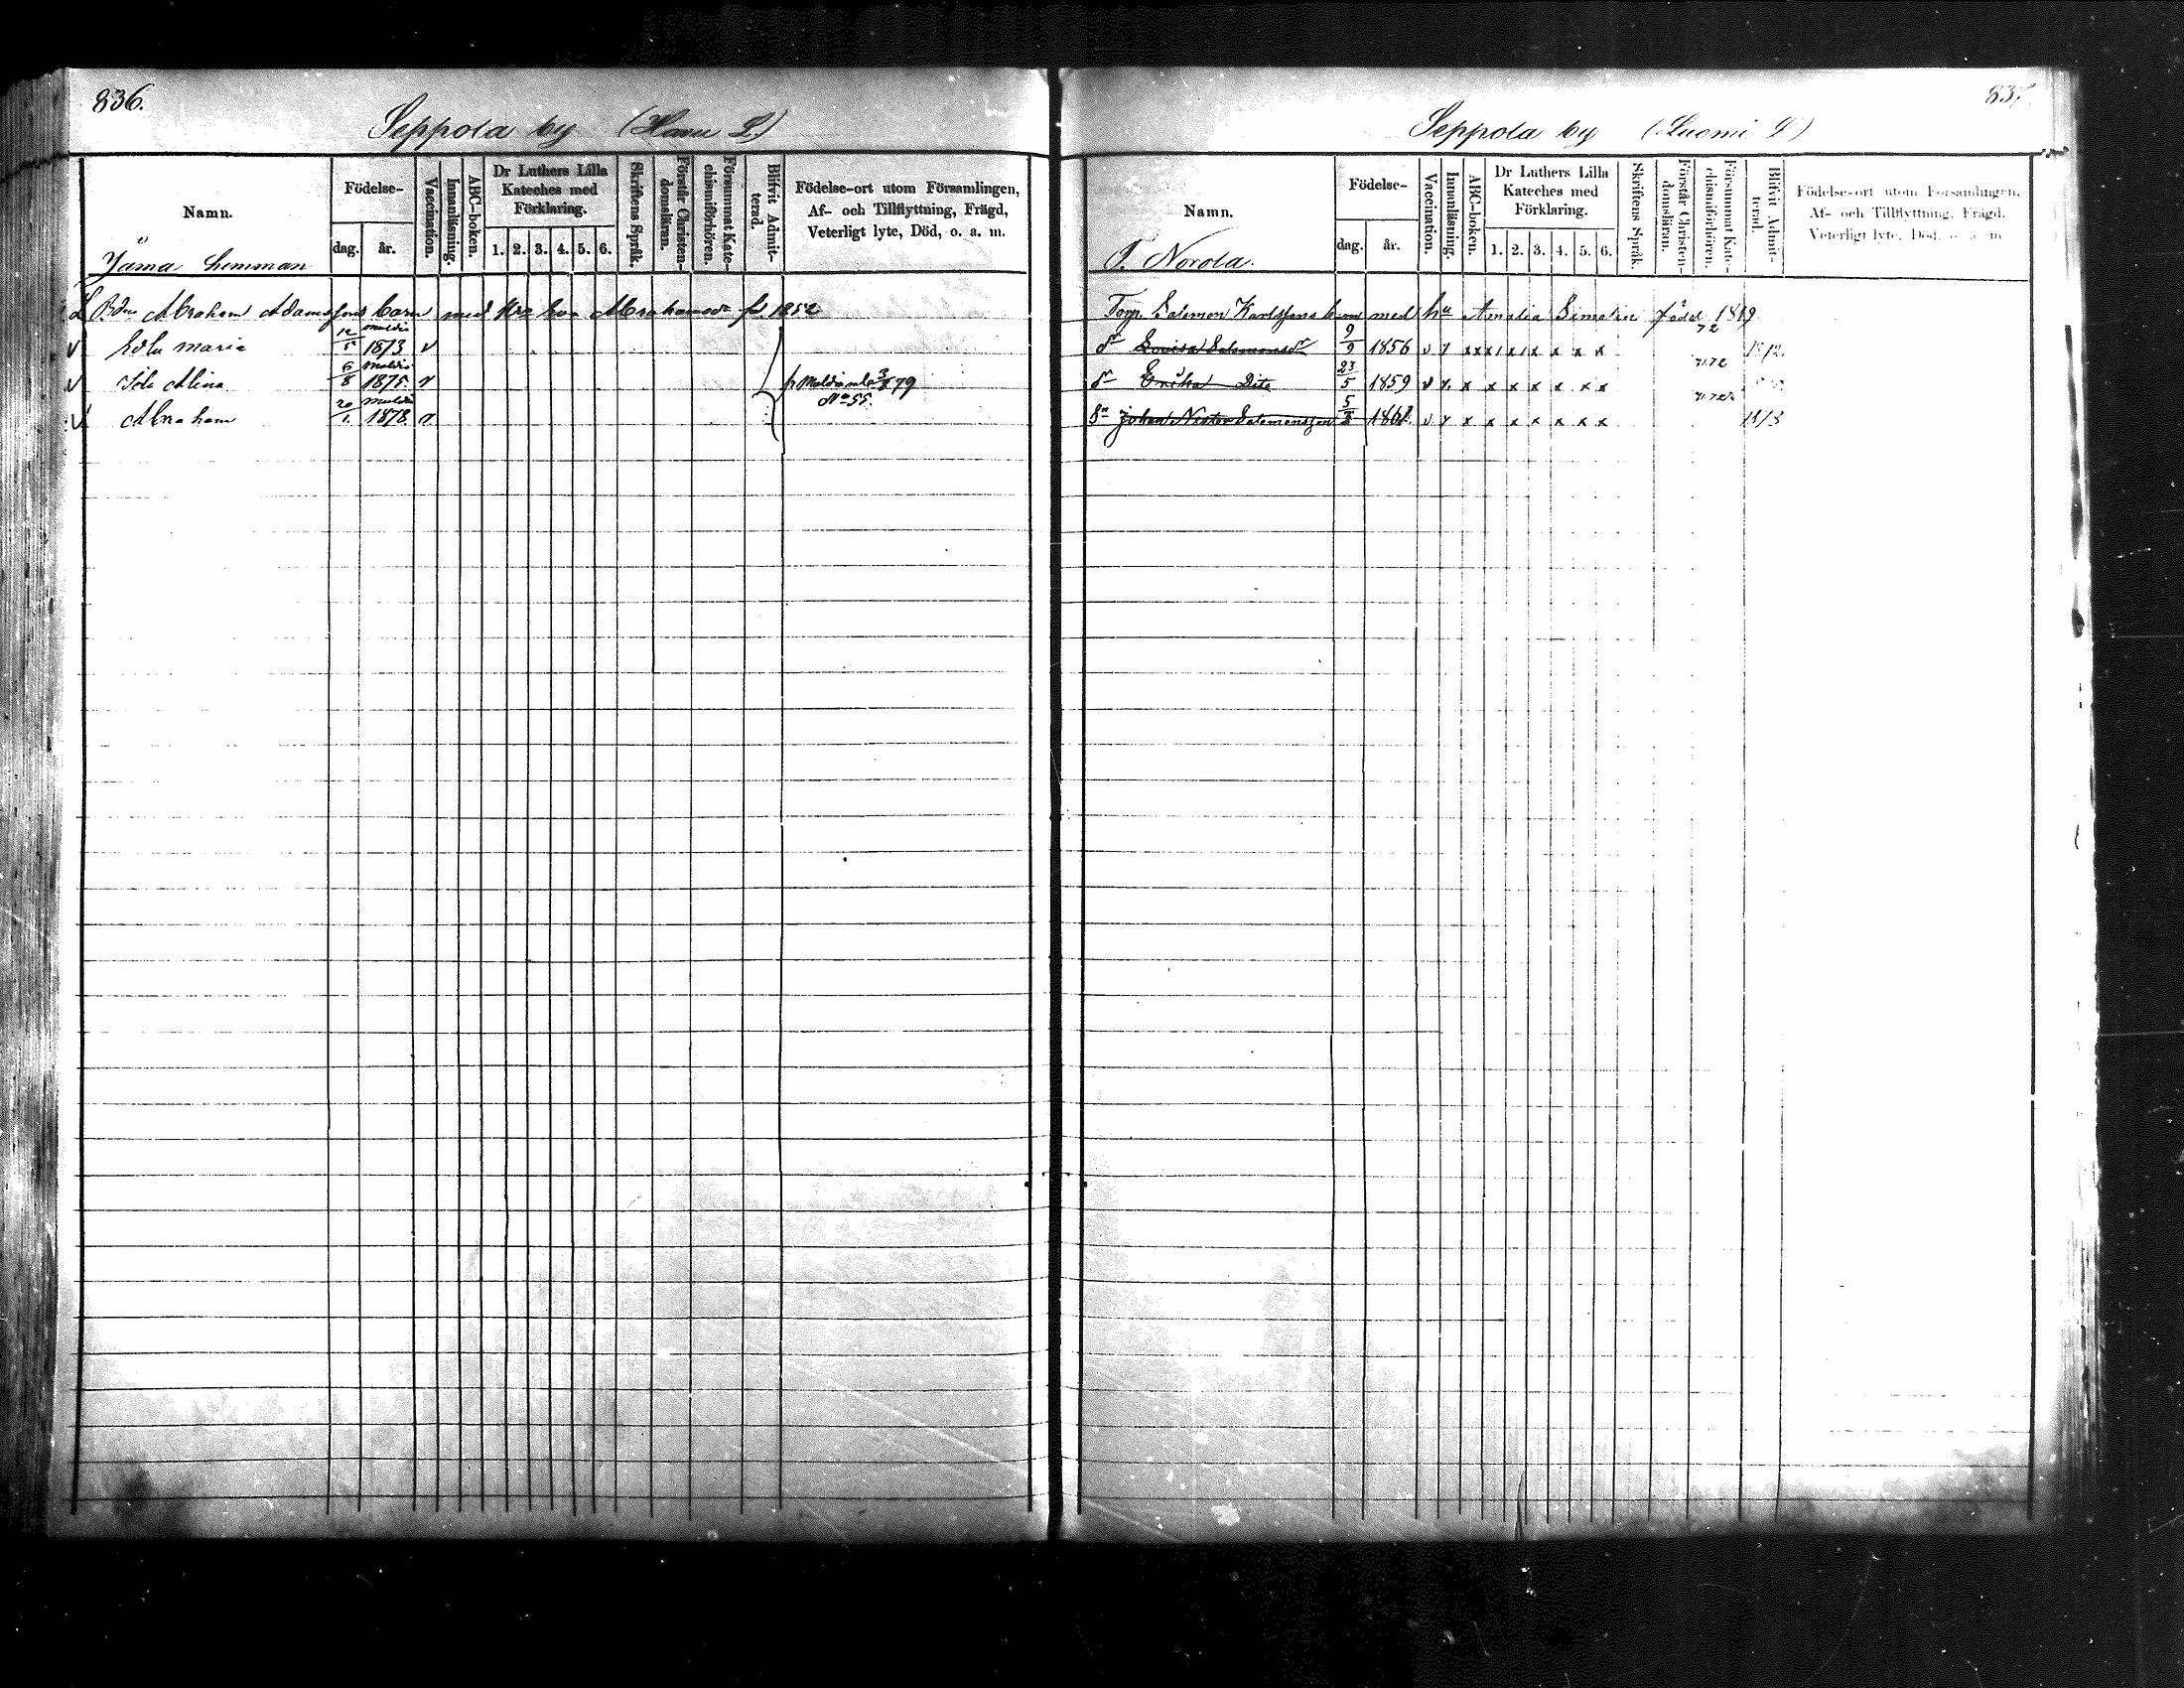 836.
Seppola by (Havu L.)
Namn.
Födelse-
dag. år.
Vaccination.
Innanläsning.
ABC-boken.
Dr Luthers Lilla
Kateches med
Förklaring.
1. 2. 3. 4. 5. 6.
Skriftens Språk.
Förstår Christen-
domsläran.
Försummat Kate-
chismiförhören.
Blifvit Admit-
terad.
Födelse-ort utom Församlingen,
Af- och Tillflyttning, Frägd,
Veterligt lyte, Död, o. a. m.
hemman
Abraham Adamssons barn med Eva Abrahamsdr 1852
v Maria 12/5 1873 v
v Ida Alina 6/8 1875 v
3/ 79
No 55.
v Abraham 20/1 1878
837
Seppola by (Suomi L)
Namn.
Födelse-
dag. år.
Vaccination.
Innanläsning.
ABC-boken.
Dr Luthers Lilla
Kateches med
Förklaring.
1. 2. 3. 4. 5. 6.
Skriftens Språk.
Förstår Christen-
domsläran.
Försummat Kate-
chismiförhören.
Blifvit Admit-
terad.
Födelse-ort utom Församlingen,
Af- och Tillflyttning, Frägd,
Veterligt lyte, Död, o. a. m.
T. Norola.
Torp. Salomon Karlssons barn med hu Amalia född 1819
dr Lovisa Salomonsdr 9/9 1856 v x x x x x x x x 72
dr Erika Dito 23/5 1859 v x x x x x x x x 71.72
Sn Johan Nestor Salomonsson 5/8 1861 v x x x x x x x x 1873